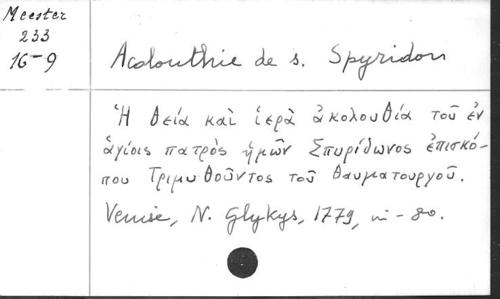 Meester
233
16-9
Acolouthie de s. Spyridon
Ἡ θεία καὶ ἱερὰ ἀκολουθία τοῦ ἐν
ἁγίοις πατρὸς ἡμῶν Σπυρίδωνος ἐπισκό-
που Τριμυθοῦντος τοῦ θαυματουργοῦ.
Venise, N. Glykys, 1779, in-8o.